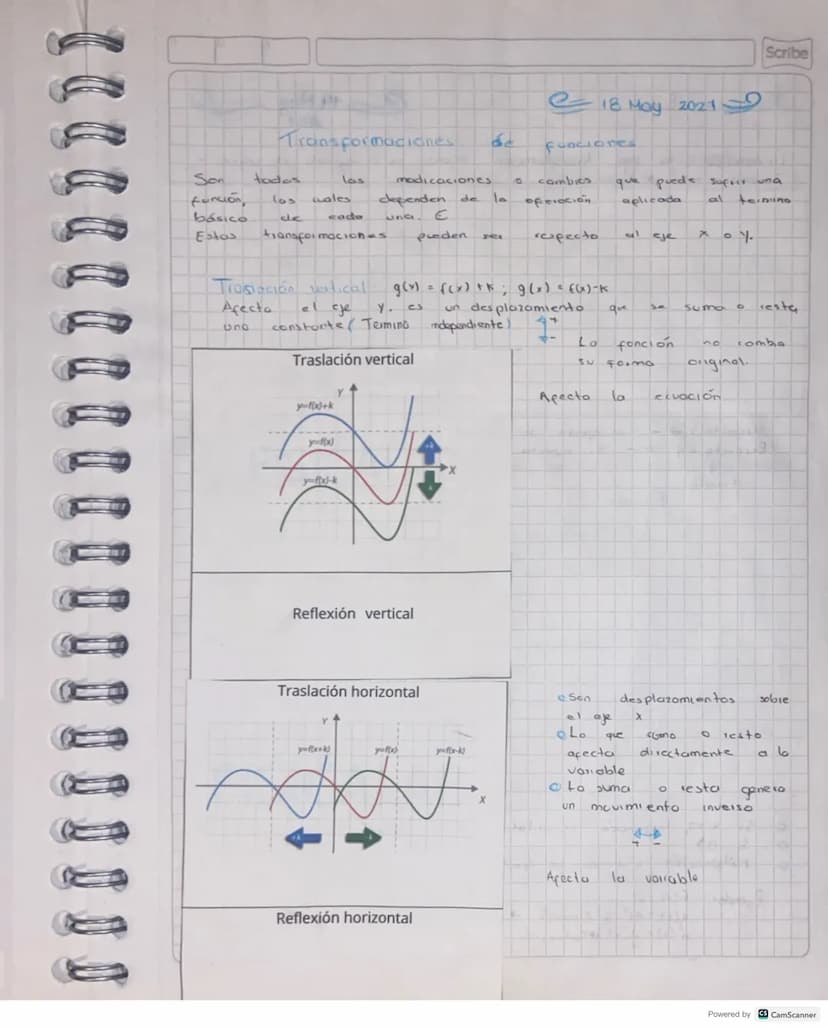 Scribe
18 May 2021
Transformaciones de funciones
Son todas las modicaciones o cambios que puede sufrir una
función, las cuales dependen de la operación aplicada al termino
básico de cada una. E
Estas transformaciones pueden ser respecto al eje x o y.
Traslación vertical g(x) = f(x) + k ; g(x) = f(x) - k
Afecta el eje y. es un desplazamiento que se suma o resta
una constante ( Termino independiente)
+
-
La función no cambia
su forma original.
Afecta la ecuación
Traslación vertical
Y
y=f(x)+k
y=f(x)
X
y=f(x)-k
Reflexión vertical
Traslación horizontal
Y
y=f(x+k)
y=f(x)
y=f(x-k)
X
Son desplazamientos sobre
el eje x
Lo que sumo o resto
afecta directamente a la
variable
La suma o resta genera
un movimiento inverso
+ -
Afecta la variable
Reflexión horizontal
Powered by CS CamScanner